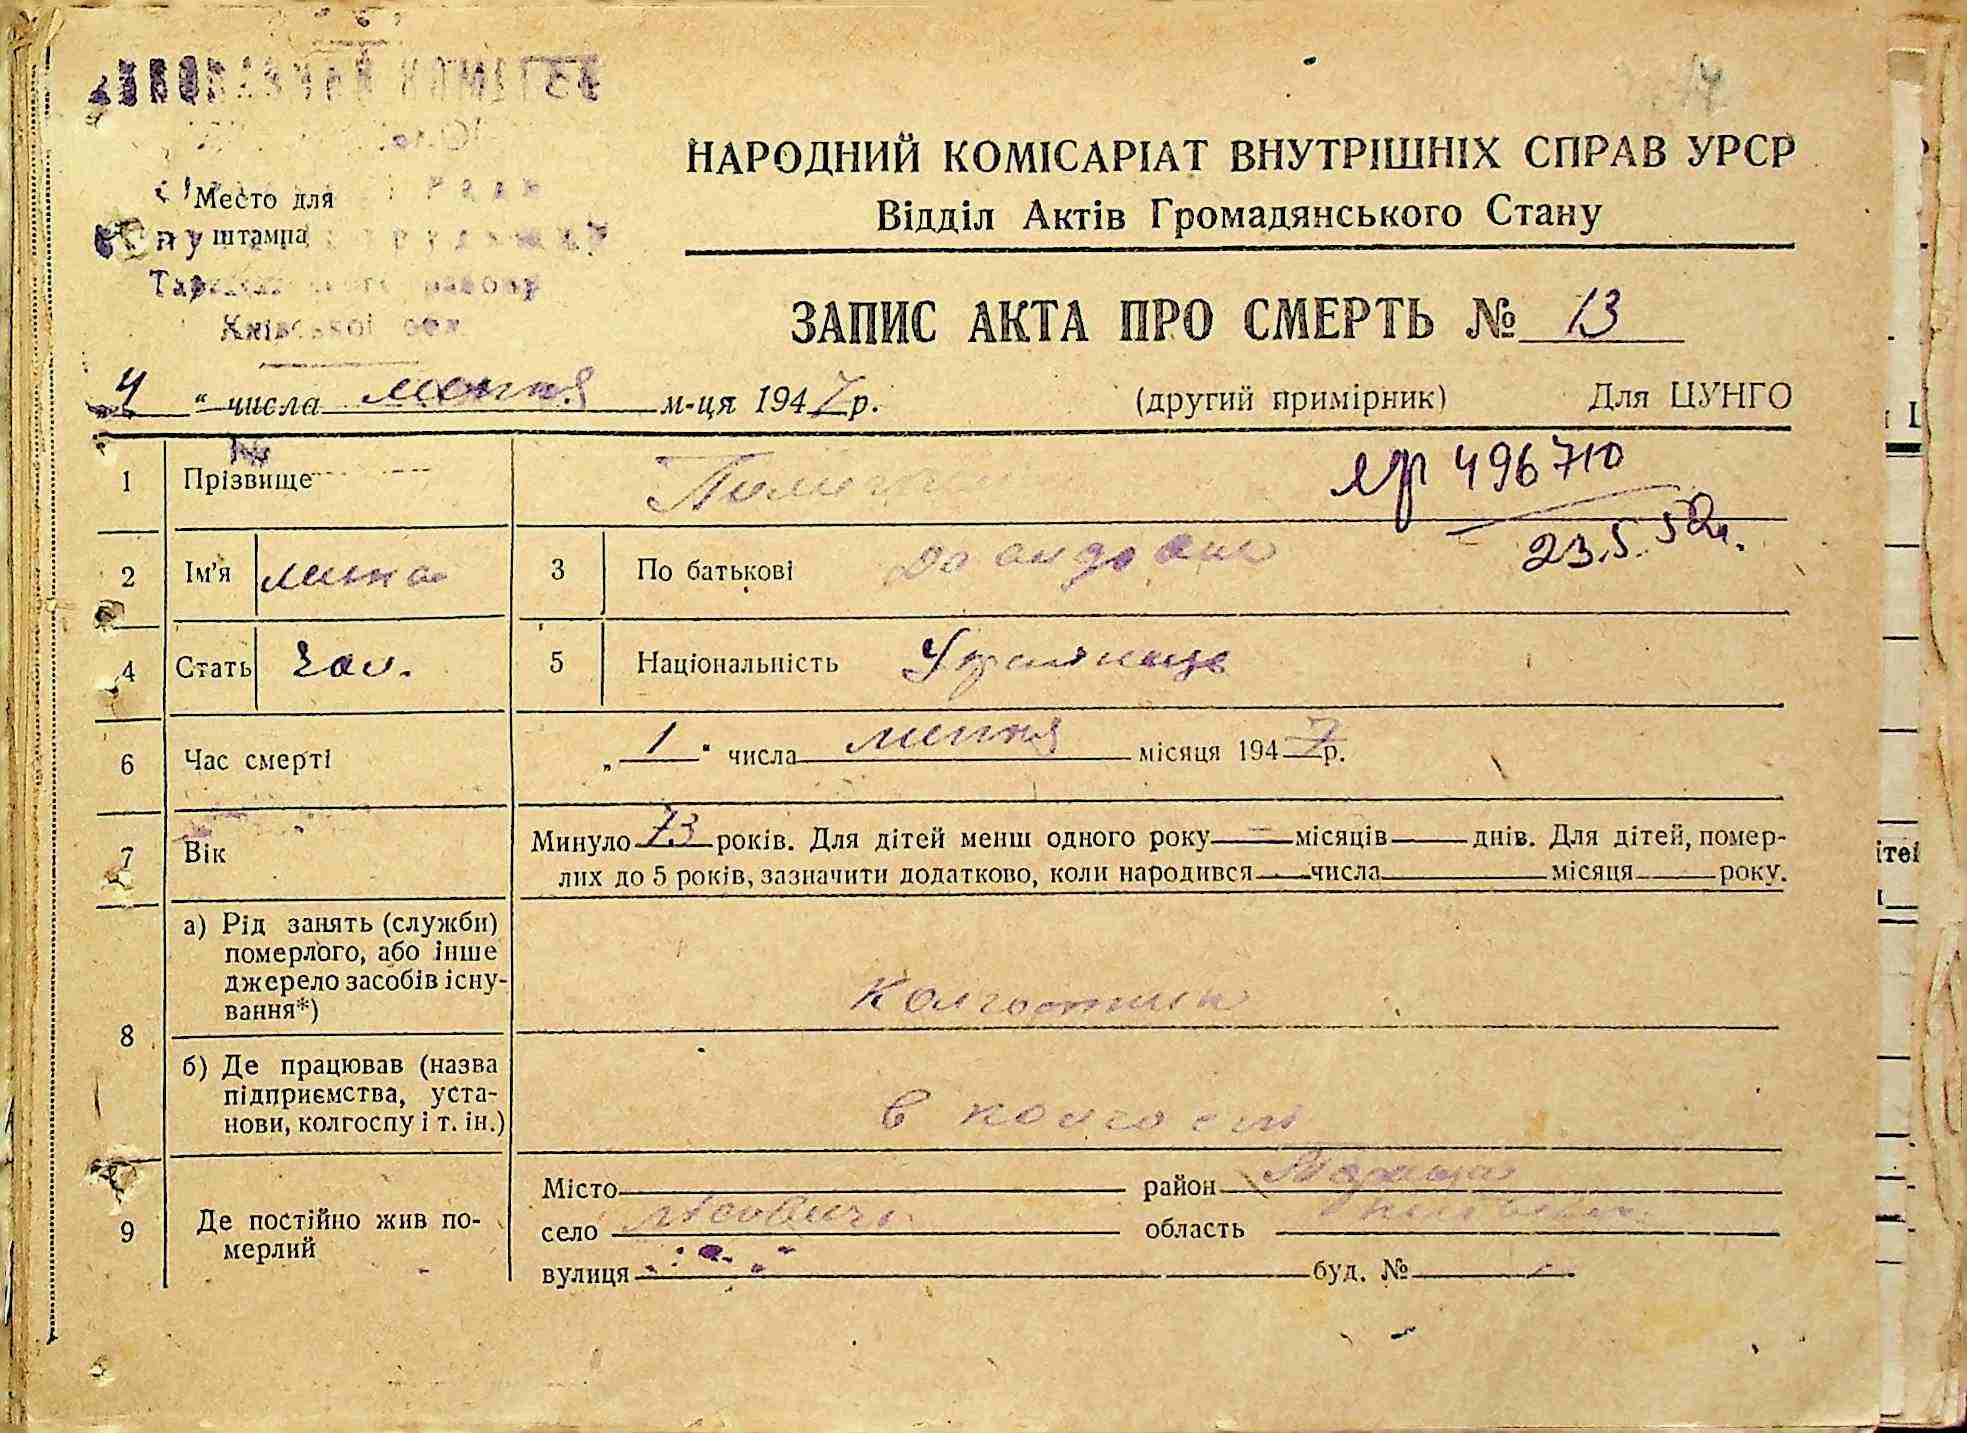 Место для
штампа
Київської обл
НАРОДНИЙ КОМІСАРІАТ ВНУТРІШНІХ СПРАВ УРСР
Відділ Актів Громадянського Стану
ЗАПИС АКТА ПРО СМЕРТЬ № 13
4 “ числа липня м-ця 1947 р. (другий примірник) Для ЦУНГО
1 Прізвище
яр 496710
23.5.52
2 Ім'я 3 По батькові
4 Стать чол. 5 Національність Українець
6 Час смерті „ 1 “ числа липня місяця 1947 р.
7 Вік Минуло 73 років. Для дітей менш одного року — місяців — днів. Для дітей, помер-
лих до 5 років, зазначити додатково, коли народився числа місяця року.
8 а) Рід занять (служби)
померлого, або інше
джерело засобів існу-
вання*)
Колгоспник
б) Де працював (назва
підприємства, уста-
нови, колгоспу і т. ін.)
в колгоспі
9 Де постійно жив по-
мерлий
Місто район Тараща
село Лісовичі область Київська
вулиця буд. №